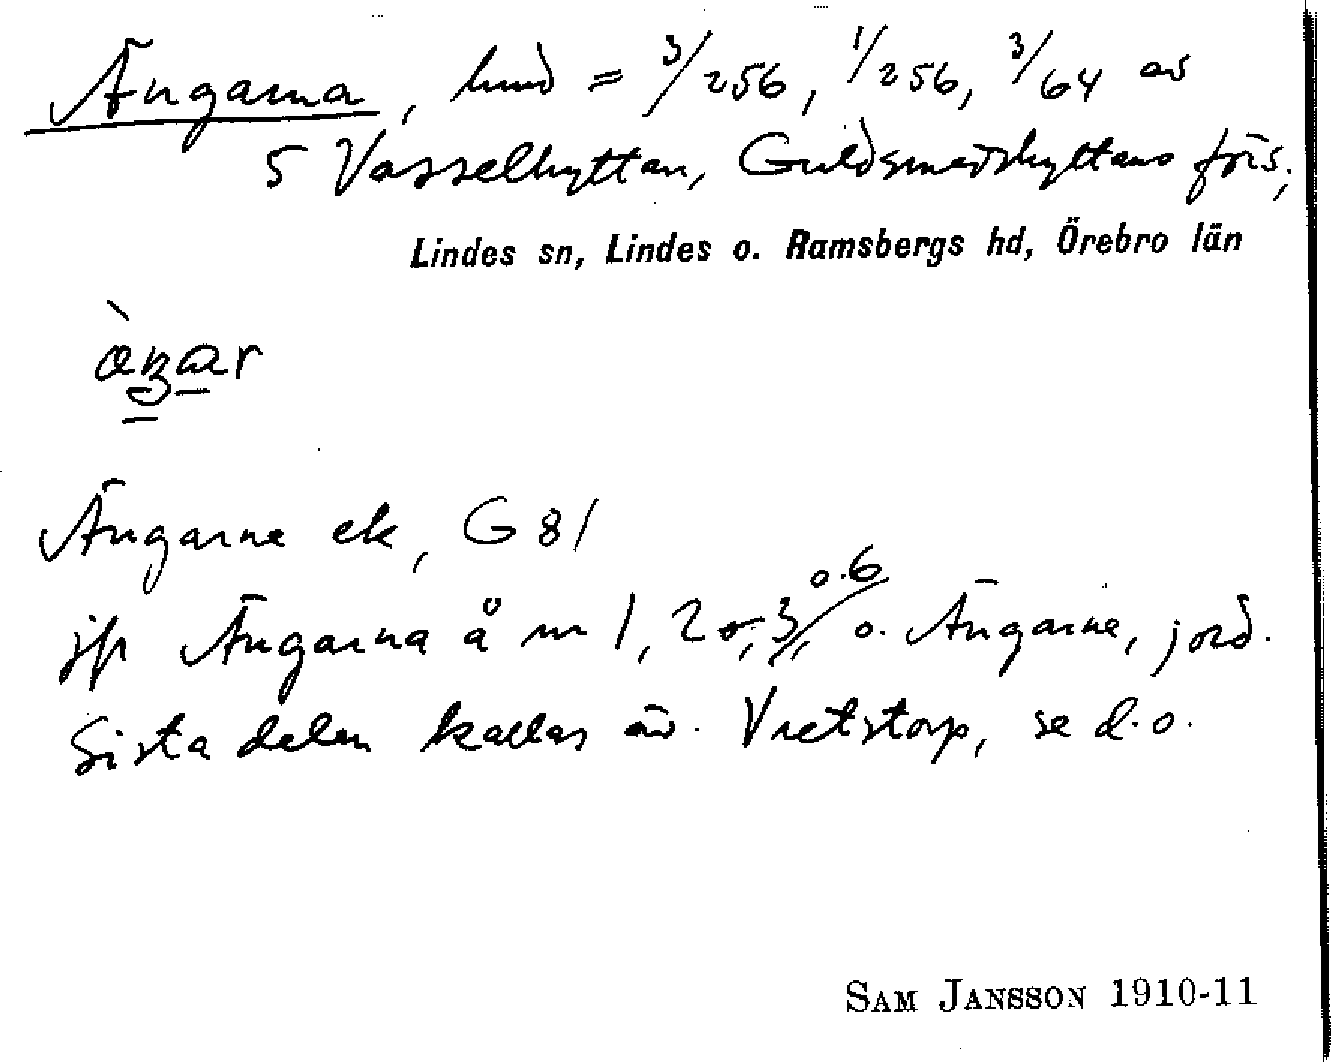 Ängarna, hmd = 3/256, 1/256, 3/64 av
5 Vasselhyttan, Guldsmedshyttans förs;
Lindes sn, Lindes o. Ramsbergs hd, Örebro län
Ängarne ek, G 81
jfr Ängarna å nr 1, 2, 3 o. 6 o. Ängarna, jord.
Sista delen kallas äv. Vretstorp, se d.o.
SAM JANSSON 1910-11